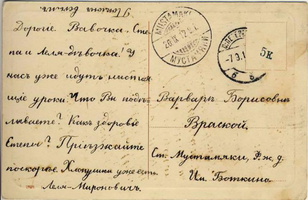 Дорогіе Вавочка, Сте-
па и Леля-дѣвочка! У
насъ уже идутъ настоя-
щіе уроки. Что Вы подѣ-
лываете? Какъ здоровье
Степы? Пріѣзжайте
поскорѣе. Хлопушки уже есть.
Леля-Мироновичъ.
MUSTAMÄKI
МУСТАМЯКИ
5к
Варварѣ Борисовнѣ
Враской.
Ст. Мустамяки, Ф. ж. д.
Им. Боткина